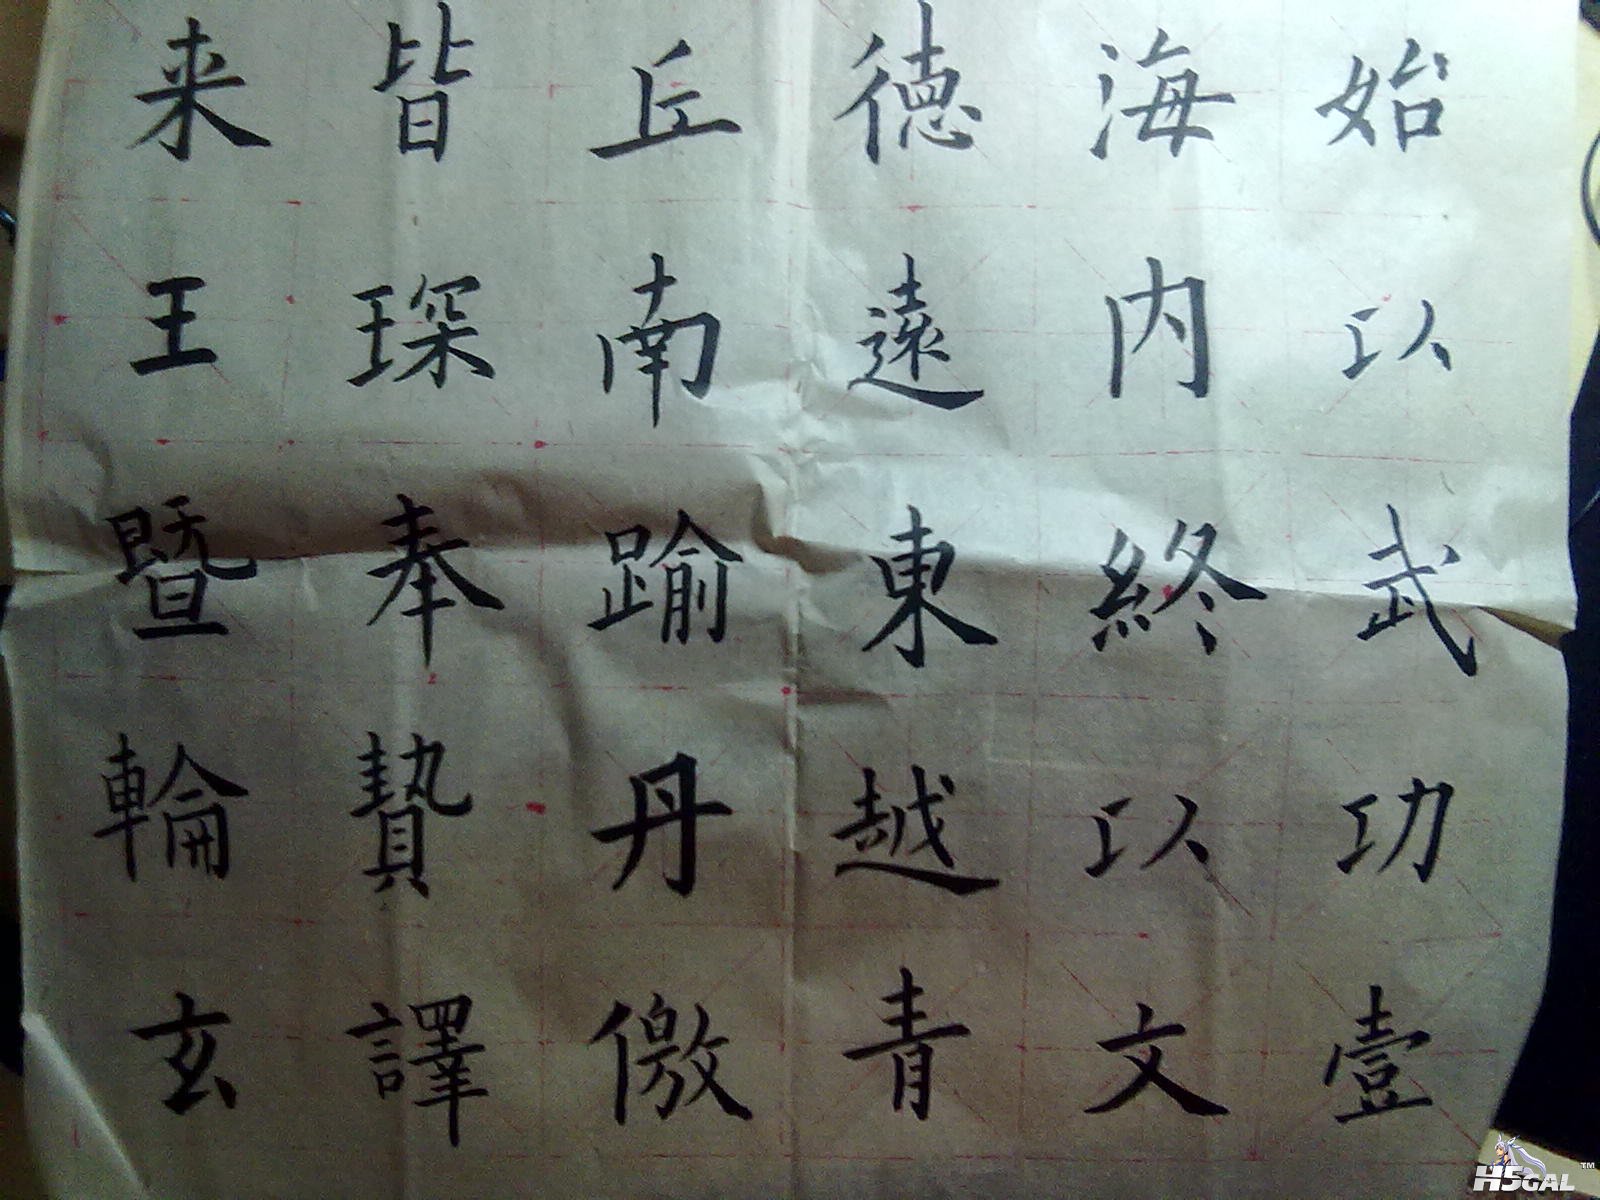 始以武功壹
海内終以文
徳遠東越青
丘南踰丹儌
皆琛奉贄譯
来王暨輪玄
H5GAL™